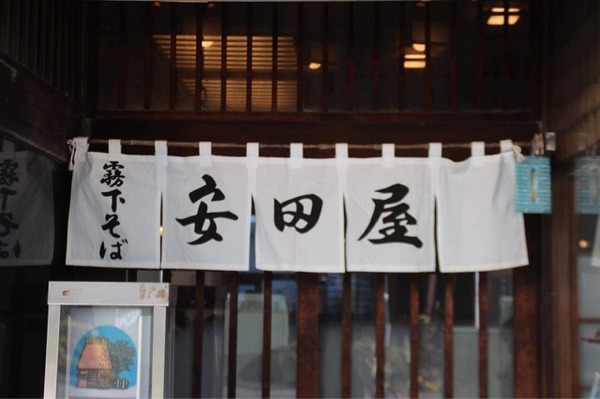 霧下そば
安田屋